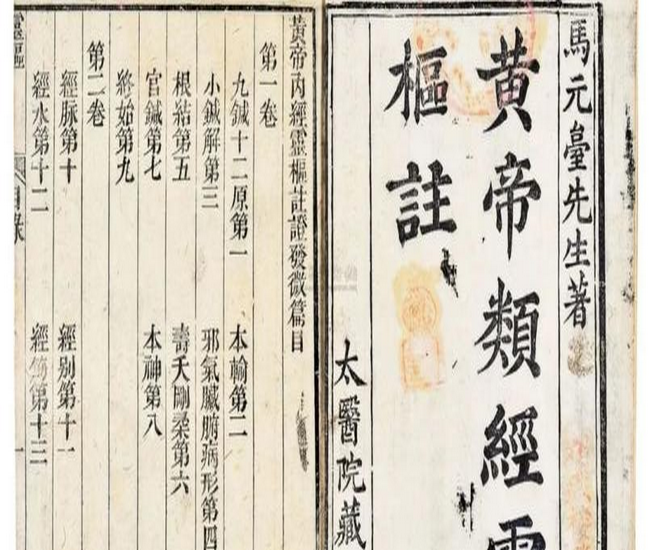 馬元臺先生著
黃帝類經靈
樞註
太醫院藏
黃帝內經靈樞註證發微篇目
第一卷
九鍼十二原第一 本輸第二
小鍼解第三 邪氣臟腑病形第四
根結第五 壽夭剛柔第六
官鍼第七 本神第八
終始第九
第二卷
經脉第十 經别第十一
經水第十二 經筋第十三
目錄 一